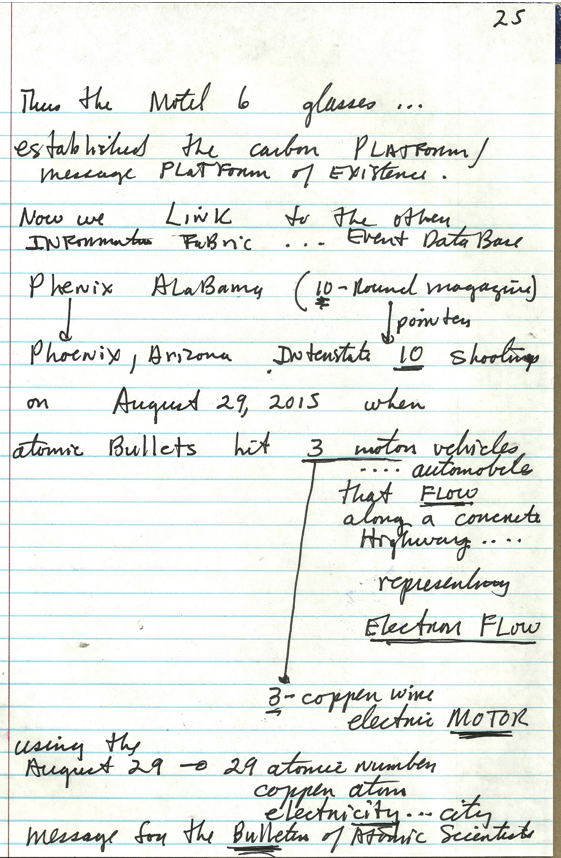 25
Thus the Motel 6 glasses ...
established the carbon PLATFORM/
message PLATFORM of EXISTENCE.
Now we LINK to the other
INFORMATION FABRIC ... Event DataBase
Phenix ALABama (10-Round magazine)
pointer
Phoenix, Arizona Interstate 10 shootings
on August 29, 2015 when
atomic Bullets hit 3 motor vehicles
.... automobile
that FLOW
along a concrete
Highway ....
representing
Electron FLOW
3-copper wire
electric MOTOR
using the
August 29 → 29 atomic number
copper atom
electricity ... city
message for the Bulletin of Atomic Scientists